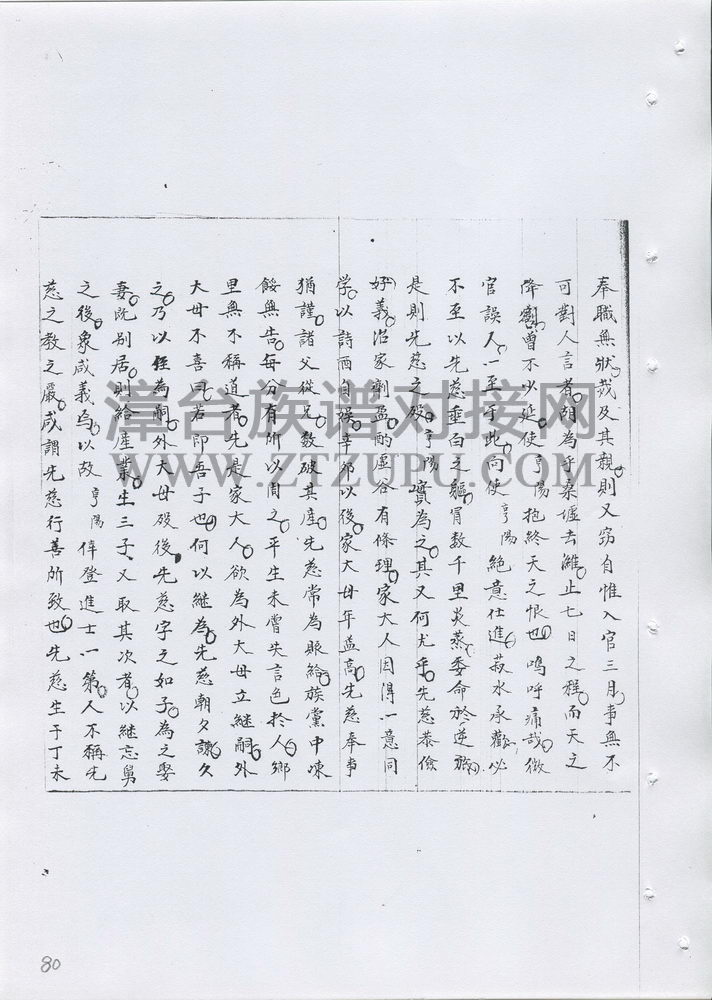 奉職無狀哉及其親則又窃自惟入官三月事無不
可對人言者胡為乎桑墟去濰止七日之程而天之
降割曾不以延使亨陽抱終天之恨也嗚呼痛哉微
官誤人一至于此向使亨陽絕意仕進菽水承歡必
不至以先慈垂白之軀冒数千里炎蒸委命於逆旅
是則先慈之殁亨陽實為之其又何尤乎先慈恭儉
好義治家劑盈酌虛谷有條理家大人因得一意問
学以詩酒自娱辛卯以後家大母年益高先慈奉事
猶謹諸父從兄数破其産先慈常為賑給族黨中凍
餒無告每分有所以周之平生未嘗失言色扵人鄉
里無不稱道者先是家大人欲為外大母立継嗣外
大母不喜曰若即吾子也何以継為先慈朝夕諫久
之乃以侄為嗣外大母殁後先慈字之如子為之娶
妻既别居則给産業生三子又取其次者以継忘舅
之後象咸義焉以故亨陽倖登進士一第人不稱先
慈之教之嚴咸謂先慈行善所致也先慈生于丁未
漳台族谱对接网
WWW.ZTZUPU.COM
80